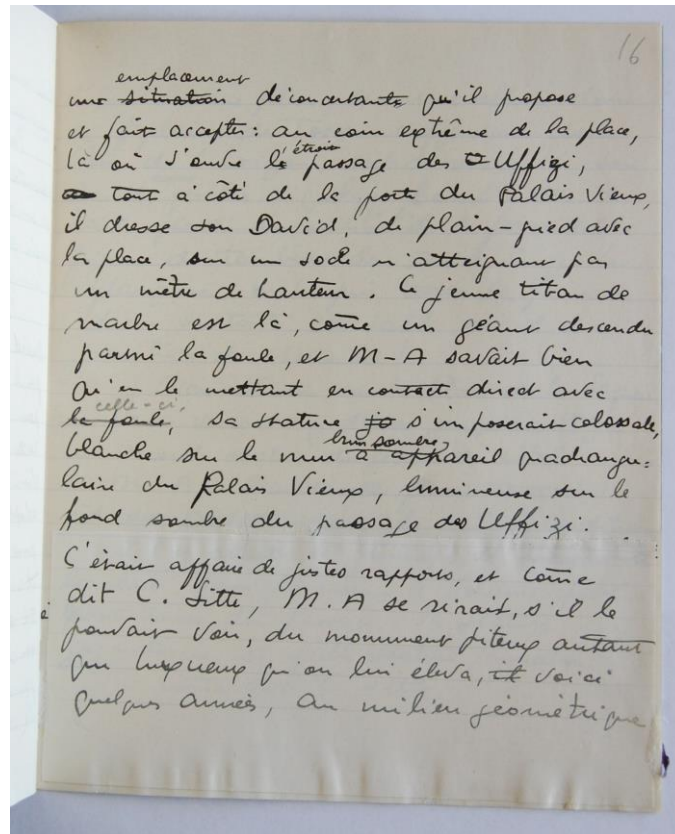 16
emplacement
une situation déconcertante qu'il propose
et fait accepter: au coin extrême de la place,
là où s'ouvre l'étroit passage des Uffizi,
tout à côté de la porte du Palais Vieux,
il dresse son David, de plain-pied avec
la place, sur un socle n'atteignant pas
un mètre de hauteur. Ce jeune titan de
marbre est là, come un géant descendu
parmi la foule, et M-A savait bien
qu'en le mettant en contact direct avec
celle-ci,
la foule, sa stature s'imposerait colossale,
brun sombre
blanche sur le mur à appareil quadrangu=
laire du Palais Vieux, lumineuse sur le
fond sombre du passage des Uffizi.
C'était affaire de justes rapports, et come
dit C. Sitte, M.A se rirait, s'il le
pouvait voir, du monument piteux autant
que luxueux qu'on lui éleva, il voici
quelques années, au milieu géométrique